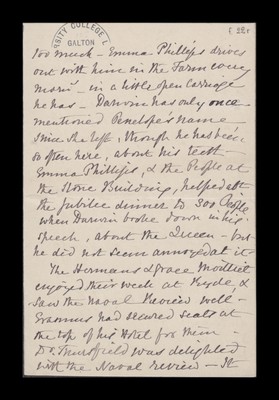 f 22r
GALTON
too much - Emma Phillips drives
out with him in the Farm
morn - in a little open Carriage
he has - Darwin has only once
mentioned Penelope's name
since she left, though he has been
so often here, about his teeth.
Emma Phillips, & the People at
the Stone Building, helped at
the Jubilee dinner to 300 People
when Darwin broke down in his
speech, about the Queen - but
he did not seem annoyed at it
The Hermans & Grace Moilliet
enjoyed their week at Ryde, &
saw the Naval Review well -
Erasmus had secured seats at
the top of his Hotel for them -
Dr. was delighted
with the Naval Review - It